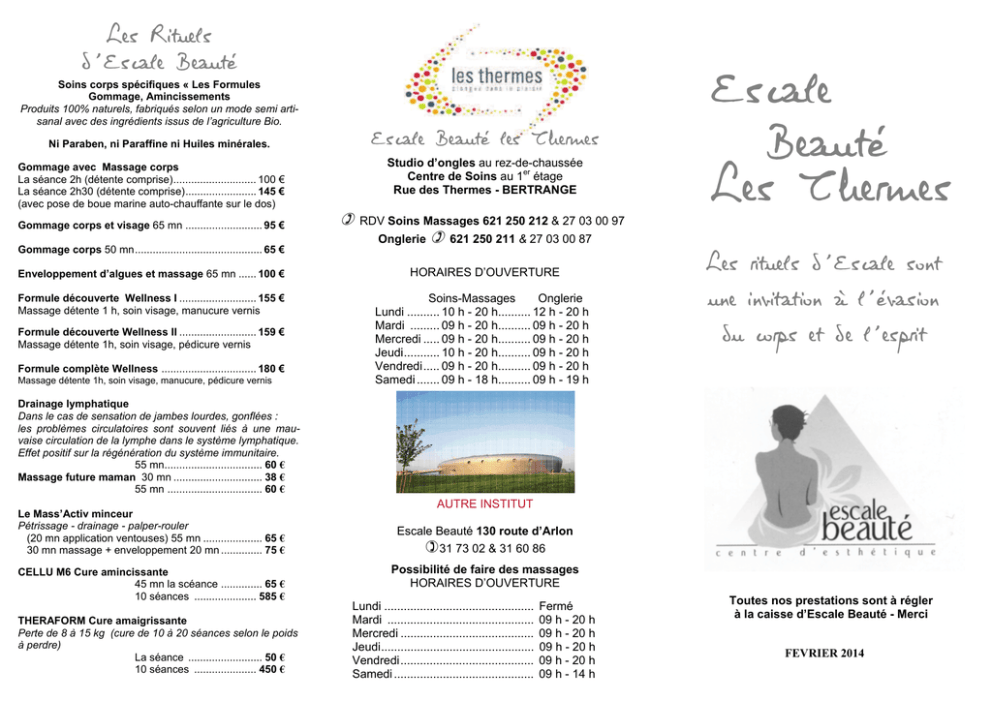 Les Rituels
d'Escale Beauté
Soins corps spécifiques « Les Formules
Gommage, Amincissements
Produits 100% naturels, fabriqués selon un mode semi arti-
sanal avec des ingrédients issus de l'agriculture Bio.
Ni Paraben, ni Paraffine ni Huiles minérales.
Gommage avec Massage corps
La séance 2h (détente comprise)............................ 100 €
La séance 2h30 (détente comprise)........................ 145 €
(avec pose de boue marine auto-chauffante sur le dos)
Gommage corps et visage 65 mn .......................... 95 €
Gommage corps 50 mn........................................... 65 €
Enveloppement d'algues et massage 65 mn ...... 100 €
Formule découverte Wellness I .......................... 155 €
Massage détente 1 h, soin visage, manucure vernis
Formule découverte Wellness II .......................... 159 €
Massage détente 1h, soin visage, pédicure vernis
Formule complète Wellness ................................ 180 €
Massage détente 1h, soin visage, manucure, pédicure vernis
Drainage lymphatique
Dans le cas de sensation de jambes lourdes, gonflées :
les problèmes circulatoires sont souvent liés à une mau-
vaise circulation de la lymphe dans le systéme lymphatique.
Effet positif sur la régénération du systéme immunitaire.
55 mn................................. 60 €
Massage future maman 30 mn .............................. 38 €
55 mn ................................ 60 €
Le Mass'Activ minceur
Pétrissage - drainage - palper-rouler
(20 mn application ventouses) 55 mn .................... 65 €
30 mn massage + enveloppement 20 mn .............. 75 €
CELLU M6 Cure amincissante
45 mn la scéance .............. 65 €
10 séances ..................... 585 €
THERAFORM Cure amaigrissante
Perte de 8 à 15 kg (cure de 10 à 20 séances selon le poids
à perdre)
La séance ......................... 50 €
10 séances ..................... 450 €
les thermes
plongez dans le plaisir
Escale Beauté les Thermes
Studio d'ongles au rez-de-chaussée
Centre de Soins au 1er étage
Rue des Thermes - BERTRANGE
RDV Soins Massages 621 250 212 & 27 03 00 97
Onglerie 621 250 211 & 27 03 00 87
HORAIRES D'OUVERTURE
Soins-Massages Onglerie
Lundi .......... 10 h - 20 h.......... 12 h - 20 h
Mardi ......... 09 h - 20 h.......... 09 h - 20 h
Mercredi ..... 09 h - 20 h.......... 09 h - 20 h
Jeudi........... 10 h - 20 h.......... 09 h - 20 h
Vendredi..... 09 h - 20 h.......... 09 h - 20 h
Samedi ....... 09 h - 18 h.......... 09 h - 19 h
AUTRE INSTITUT
Escale Beauté 130 route d'Arlon
31 73 02 & 31 60 86
Possibilité de faire des massages
HORAIRES D'OUVERTURE
Lundi .............................................. Fermé
Mardi ............................................. 09 h - 20 h
Mercredi ......................................... 09 h - 20 h
Jeudi............................................... 09 h - 20 h
Vendredi......................................... 09 h - 20 h
Samedi ........................................... 09 h - 14 h
Escale
Beauté
Les Thermes
Les rituels d'Escale sont
une invitation à l'évasion
du corps et de l'esprit
escale
beauté
centre d'esthétique
Toutes nos prestations sont à régler
à la caisse d'Escale Beauté - Merci
FEVRIER 2014